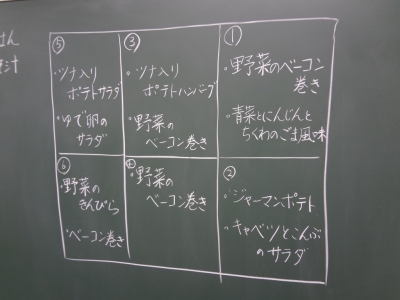 ①
・野菜のベーコン
巻き
・青菜とにんじんと
ちくわのごま風味
②
・ジャーマンポテト
・キャベツとこんぶ
のサラダ
③
・ツナ入り
ポテトハンバーグ
・野菜の
ベーコン巻き
④
・野菜の
ベーコン巻き
⑤
・ツナ入り
ポテトサラダ
・ゆで卵の
サラダ
⑥
・野菜の
きんぴら
・ベーコン巻き